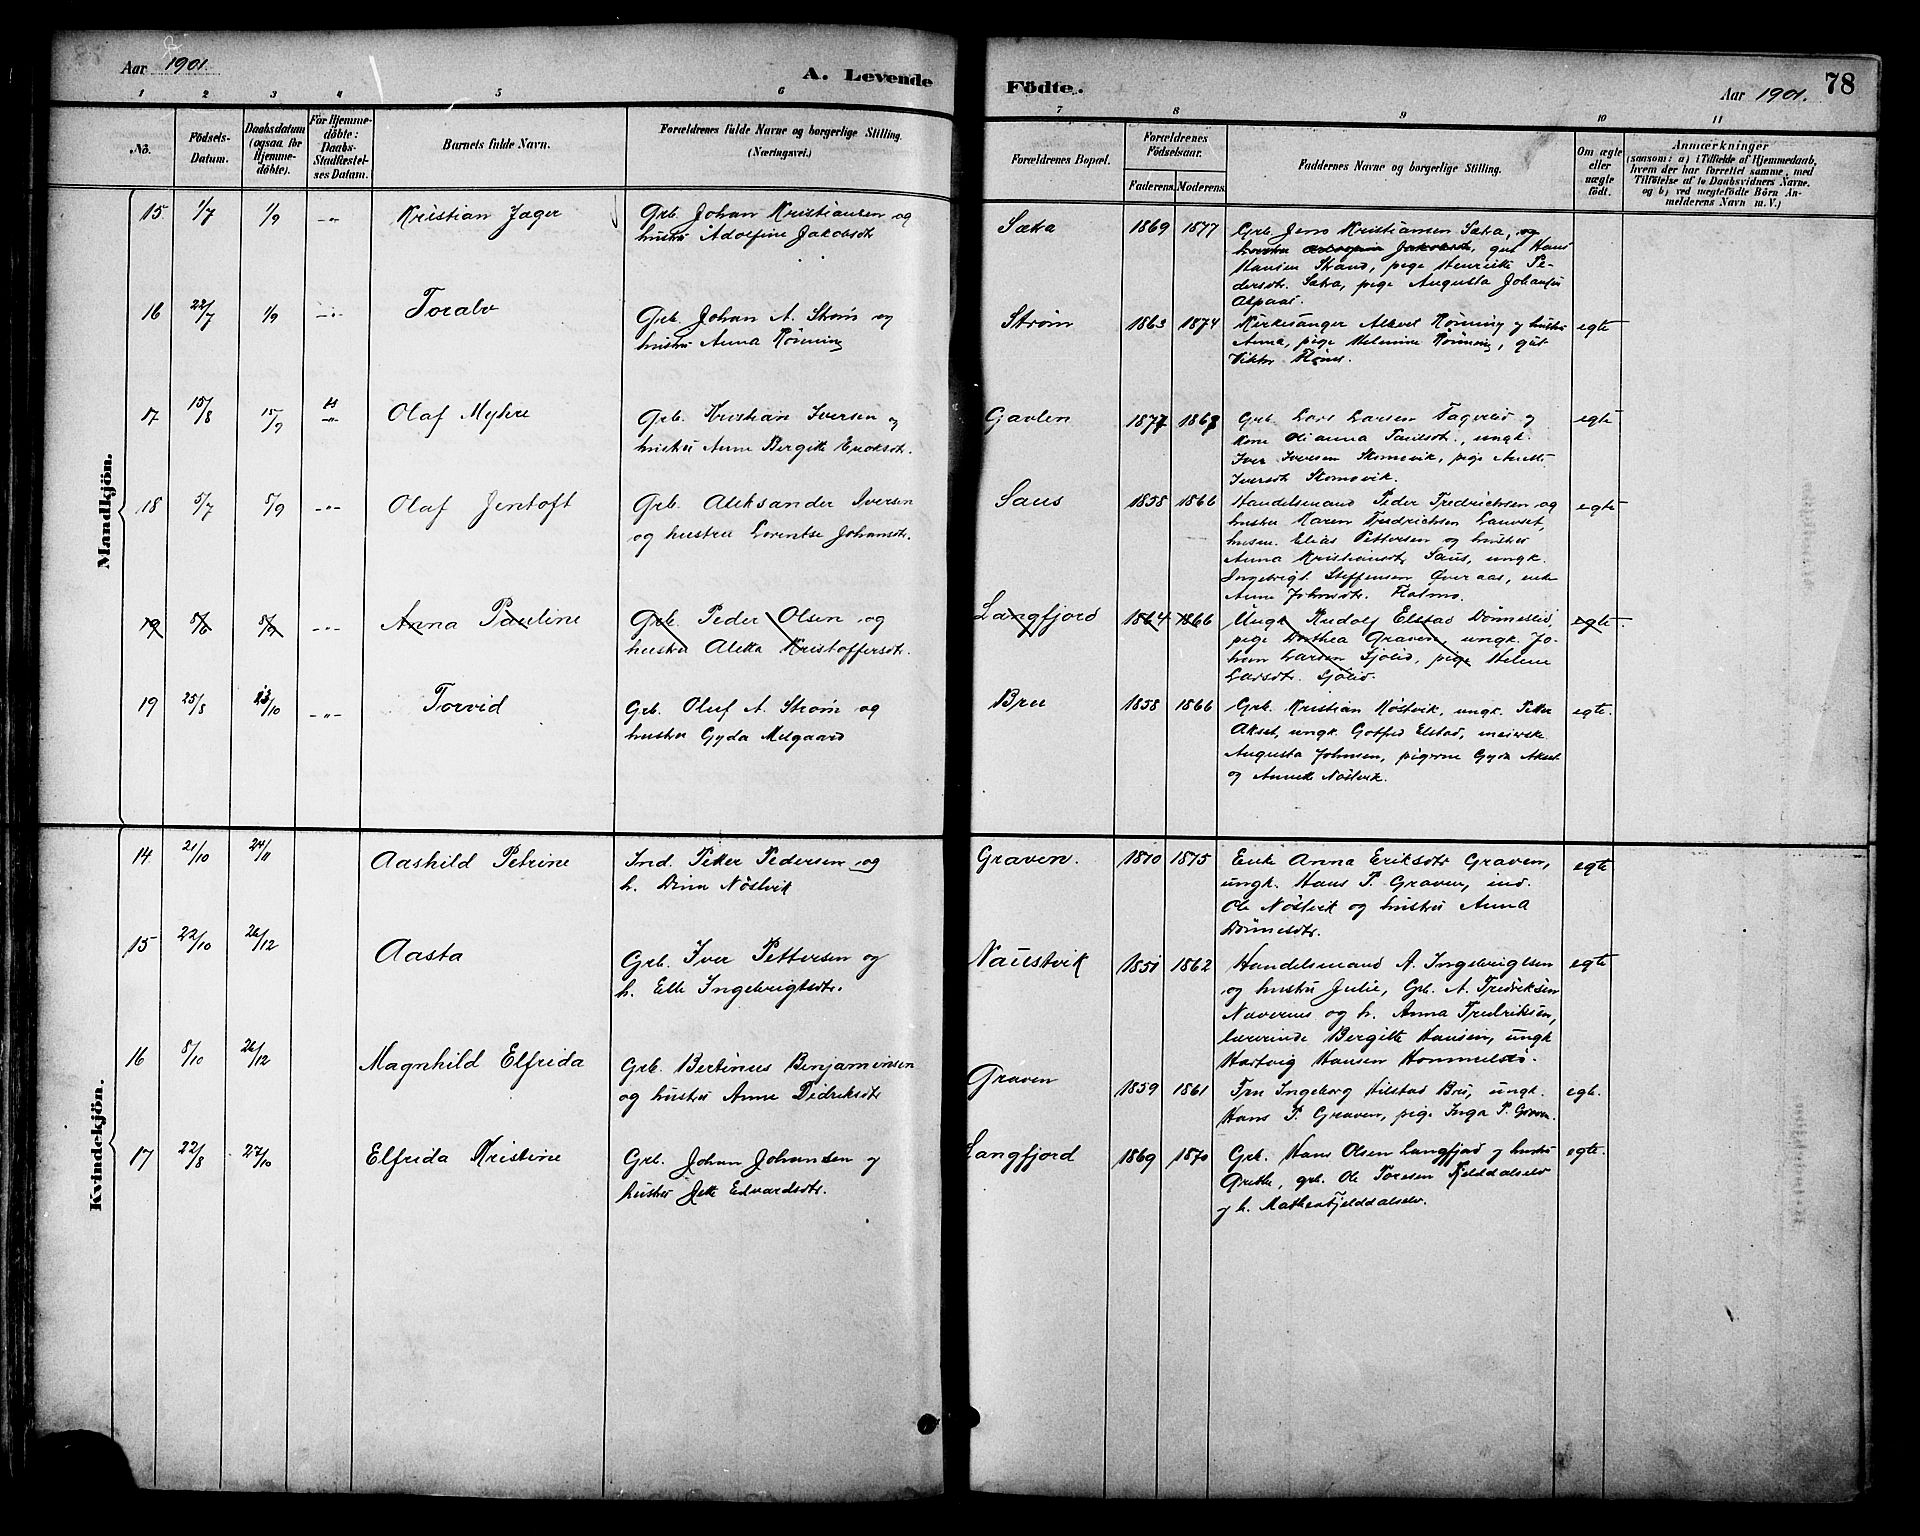 Aar 1901.
A. Levende
Födte.
Aar 1901.
78
1 2 3 4 5 6 7 8 9 10 11
No.
Födsels-
Datum.
Daabsdatum
(ogsaa for
Hjemme-
döbte).
For Hjemme-
döbte:
Daabs-
Stadfæstel-
ses Datum.
Barnets fulde Navn.
Forældrenes fulde Navne og borgerlige Stilling.
(Næringsvei.)
Forældrenes Bopæl.
Forældrenes
Födselsaar.
Faderens.
Moderens.
Faddernes Navne og borgerlige Stilling.
Om ægte
eller
uægte
födt.
Anmærkninger
(saasom: a) i Tilfælde af Hjemmedaab,
hvem der har forrettet samme, med
Tilföielse af to Daabsvidners Navne,
og b) ved uægtefödte Börn An-
melderens Navn m. V.)
Mandkjön.
15 1/7 1/9 -"- Kristian Jager
Grb. Johan Kristiansen og
hustru Adolfine Jakobsdt
Sætra 1869 1877
Grb. Jens Kristiansen Sætra, og
hustru Jakobsdt, gut Hans
Hansen Strand, pige Henriette Pe-
dersdt. Sætra, pige Augusta Johansen
Aspaas.
16 22/7 1/9 -"- Toralv
Grb. Johan A. Strøm og
hustru Anna Rönning
Strøm 1863 1874
Kirkesanger Rönning og hustru
Anna, pige Helmine Rönning, gut
Viktor
egte
17 15/8 15/9 -"- Olaf Myhre
Grb. Kristian Iversen og
hustru Anne Bergitte Enoksdt.
Gavlen 1877 1867
Grb. Lars Larsen Fagerlid og
Kone Olianna Paulsdt., ungk.
Iver Iversen Skomovik, pige Anette
Iversdt Skomovik.
egte
18 5/7 5/9 -"- Olaf Jentoft
Grb. Aleksander Iversen
og hustru Lorentse Johansdt.
Saus 1858 1866
Handelsmand Peder Fredrichsen og
hustru Karen Fredrichsen Lauvset,
husm. Elias Pettersen og hustru
Anna Kristiansdt Saus, ungk.
Ingebrigt Steffensen Øveraas, enke
Anne Johnsdt. Holmo.
egte
19 5/6 5/9 -"- Anna Pauline
Grb. Peder Olsen og
hustru Aleka Kristoffersdt.
Langfjord 1864 1866
Ungk Rudolf Elstad Dönneslid,
pige Dorthea Graven, ungk. Jo-
han Larsen Sjölid, pige Helene
Larsdt. Sjölid.
egte.
19 25/8 13/10 -"- Torvid
Grb. Oluf A. Strøm og
hustru Gyda Melgaard
Bru 1858 1866
Grb. Kristian Nöstvik, ungk. Peter
Akset, ungk. Gotfred Elstad, meierske
Augusta Johnsen, pigerne Gyda Akset
og Annete Nöstvik.
egte.
Kvindekjön.
14 21/10 24/11 Aashild Petrine
Ind. Peter Pedersen og
h. Dina Nöstvik
Graven. 1870 1875
Enke Anna Eriksdt Graven,
ungk. Hans P. Graven, ind.
Ole Nöstvik og hustru Anna
Dönnesdt.
egte
15 22/10 26/12 Aasta
Grb. Iver Pettersen og
h. Elle Ingebrigtsdt.
Naustvik 1851 1862
Handelsmand A. Ingebrigtsen
og hustru Julie, Grb. A. Fredriksen
Navernes og h. Anna Fredriksen,
lærerinde Bergitte Hansen, ungk
Hartvig Hansen Hommelstö.
egte
16 5/10 26/12 Magnhild Elfrida
Grb. Bertinus Benjaminsen
og hustru Anne Didriksdt
Graven 1859 1861
Fru Ingeborg Hilstad Bru, ungk.
Hans P. Graven, pige Inga P. Graven
egte.
17 22/8 27/10 Elfrida Kristine
Grb. Johan Johansen og
hustru Jette Edvardsdt.
Langfjord 1869 1870
Grb. Hans Olsen Langfjord og hustru
Grethe, grb. Ole Toresen Fjelddalselv
og h. Mathea Fjelddalselv.
egte.